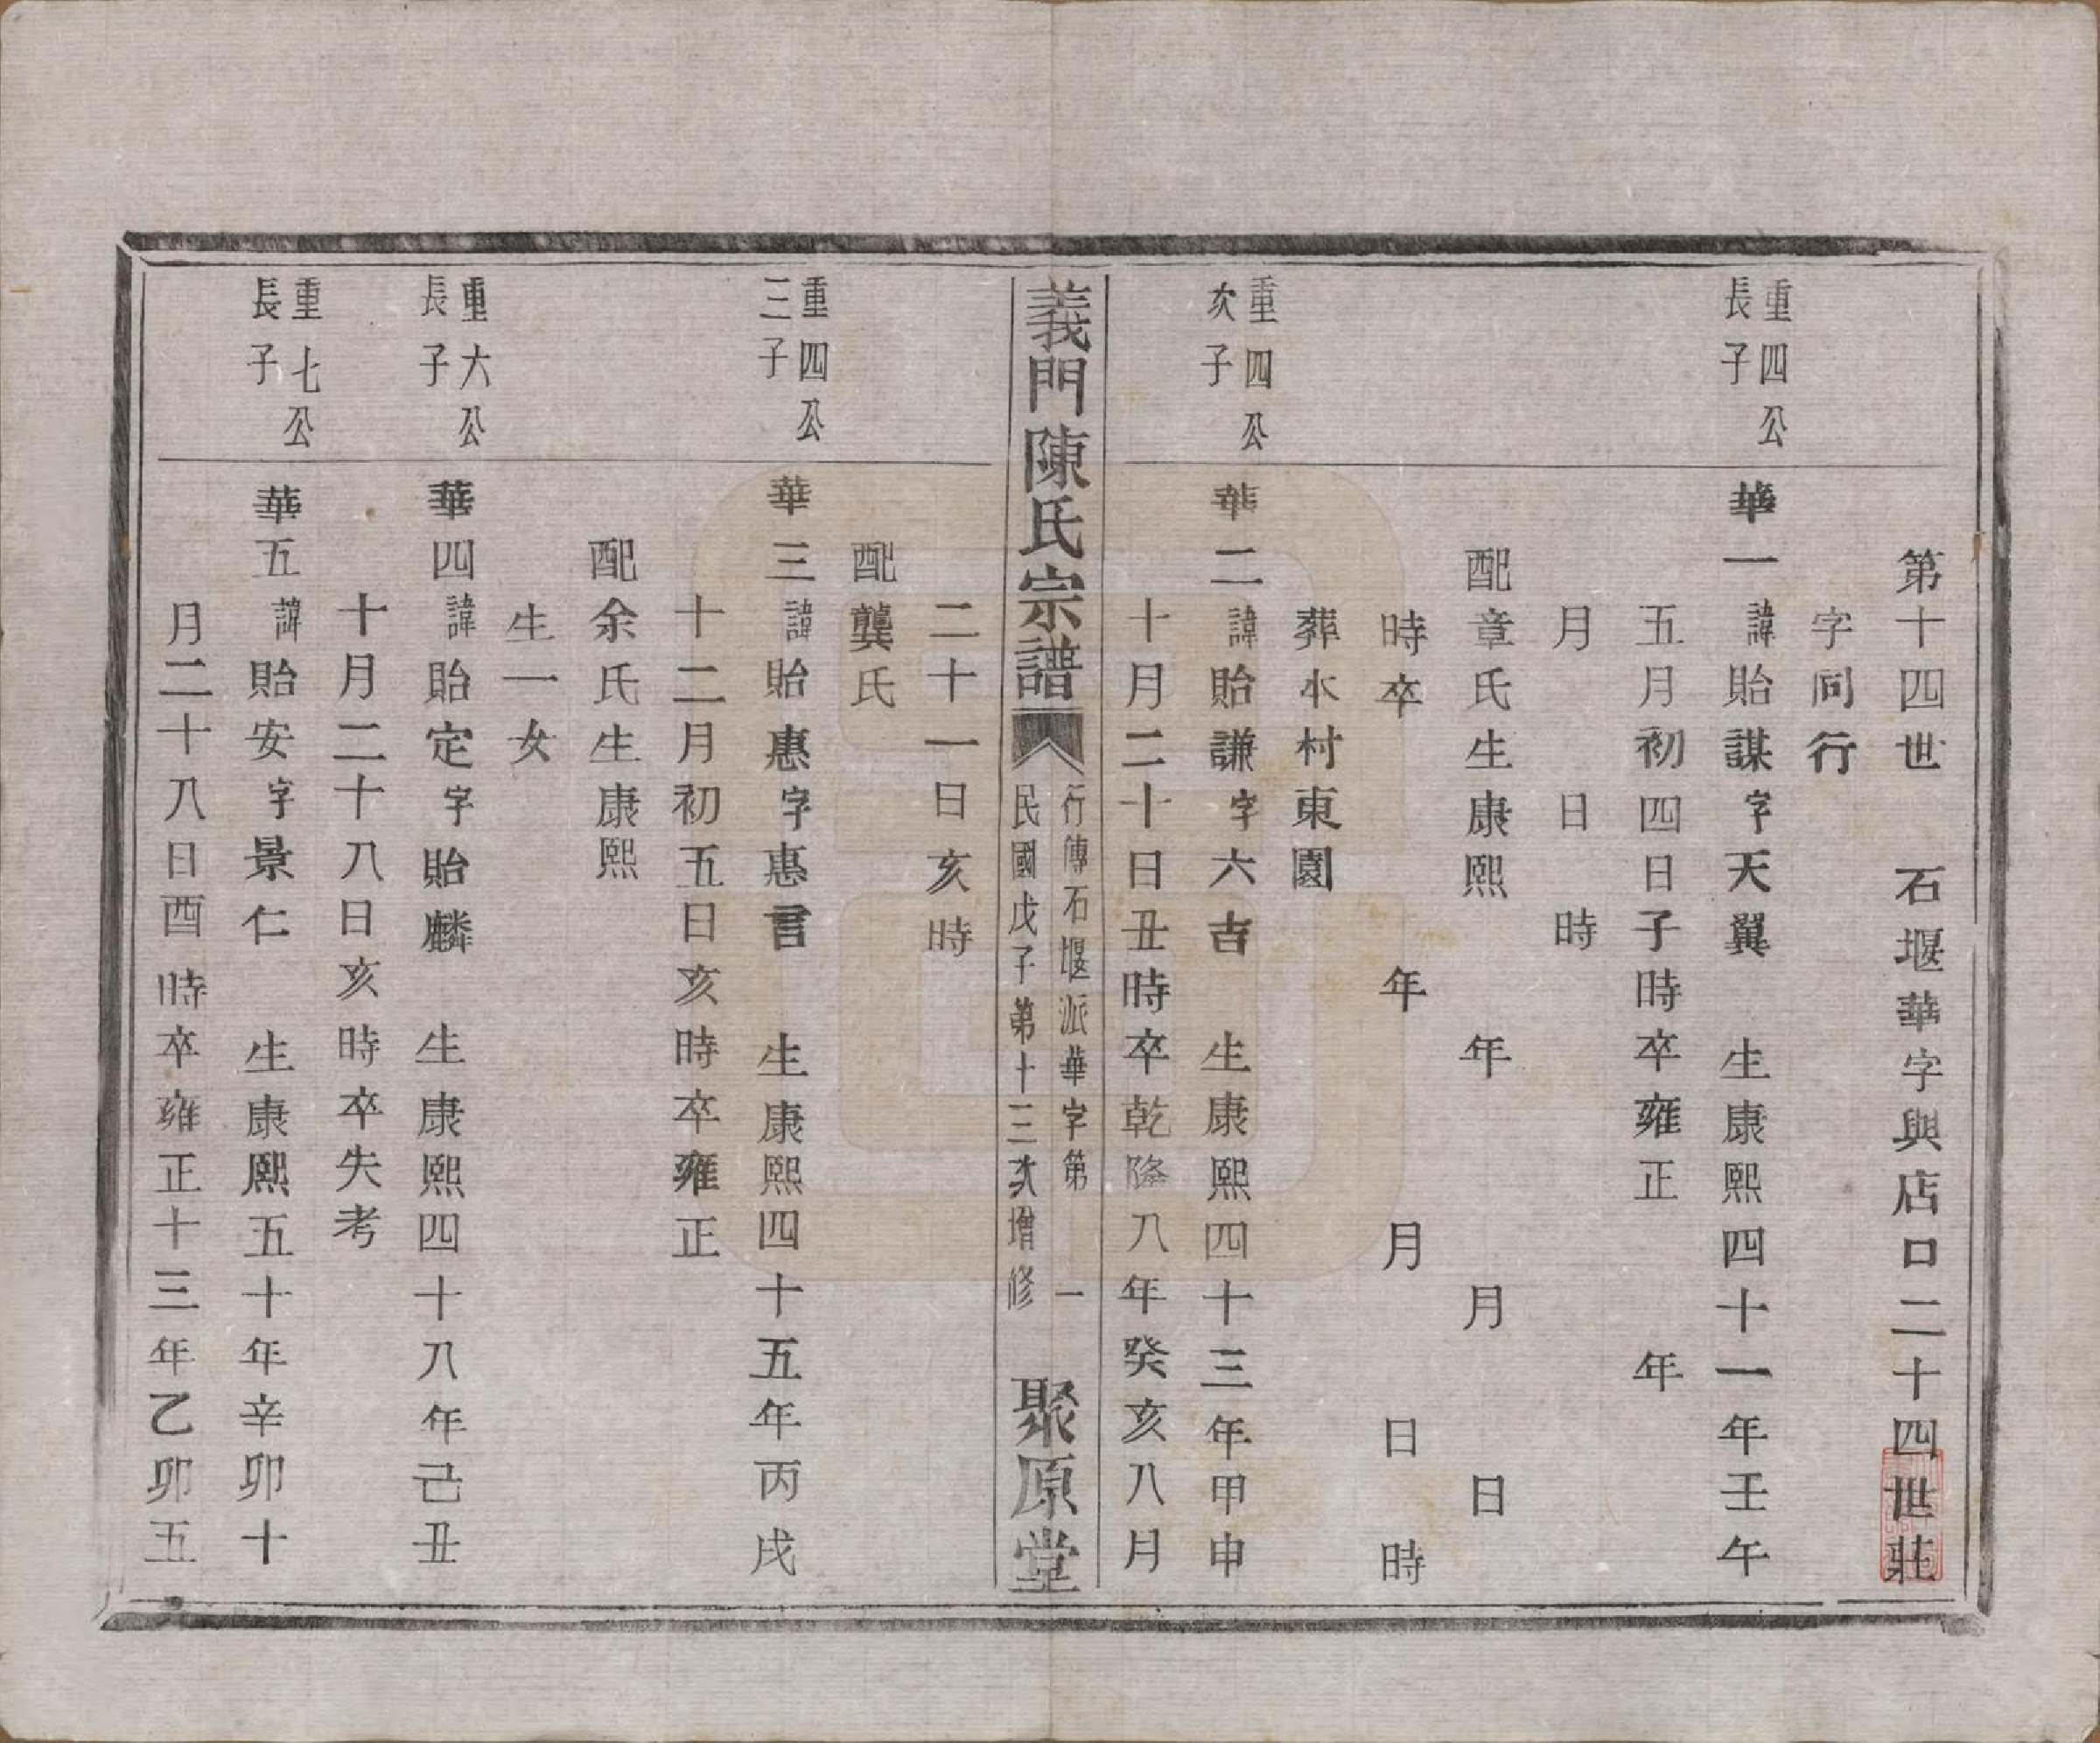 第十四世　石堰華字與店口二十四世莊
字同行
重四公
長子
華一諱貽謀字天翼　生康熙四十一年壬午
五月初四日子時卒雍正　　年
月　　日　　時
配章氏生康熙　　年　　月　　日
時卒　　年　　月　　日　　時
葬水村東園
重四公
次子
華二諱貽謙字六吉　生康熙四十三年甲申
十月二十日丑時卒乾隆八年癸亥八月
義門陳氏宗譜
行傳石堰派華字第　一
民國戊子第十三次增修
聚原堂
二十一日亥時
配龔氏
重四公
三子
華三諱貽惠字惠言　生康熙四十五年丙戌
十二月初五日亥時卒雍正
配余氏生康熙
生一女
重六公
長子
華四諱貽定字貽麟　生康熙四十八年己丑
十月二十八日亥時卒失考
重七公
長子
華五諱貽安字景仁　生康熙五十年辛卯十
月二十八日酉時卒雍正十三年乙卯五